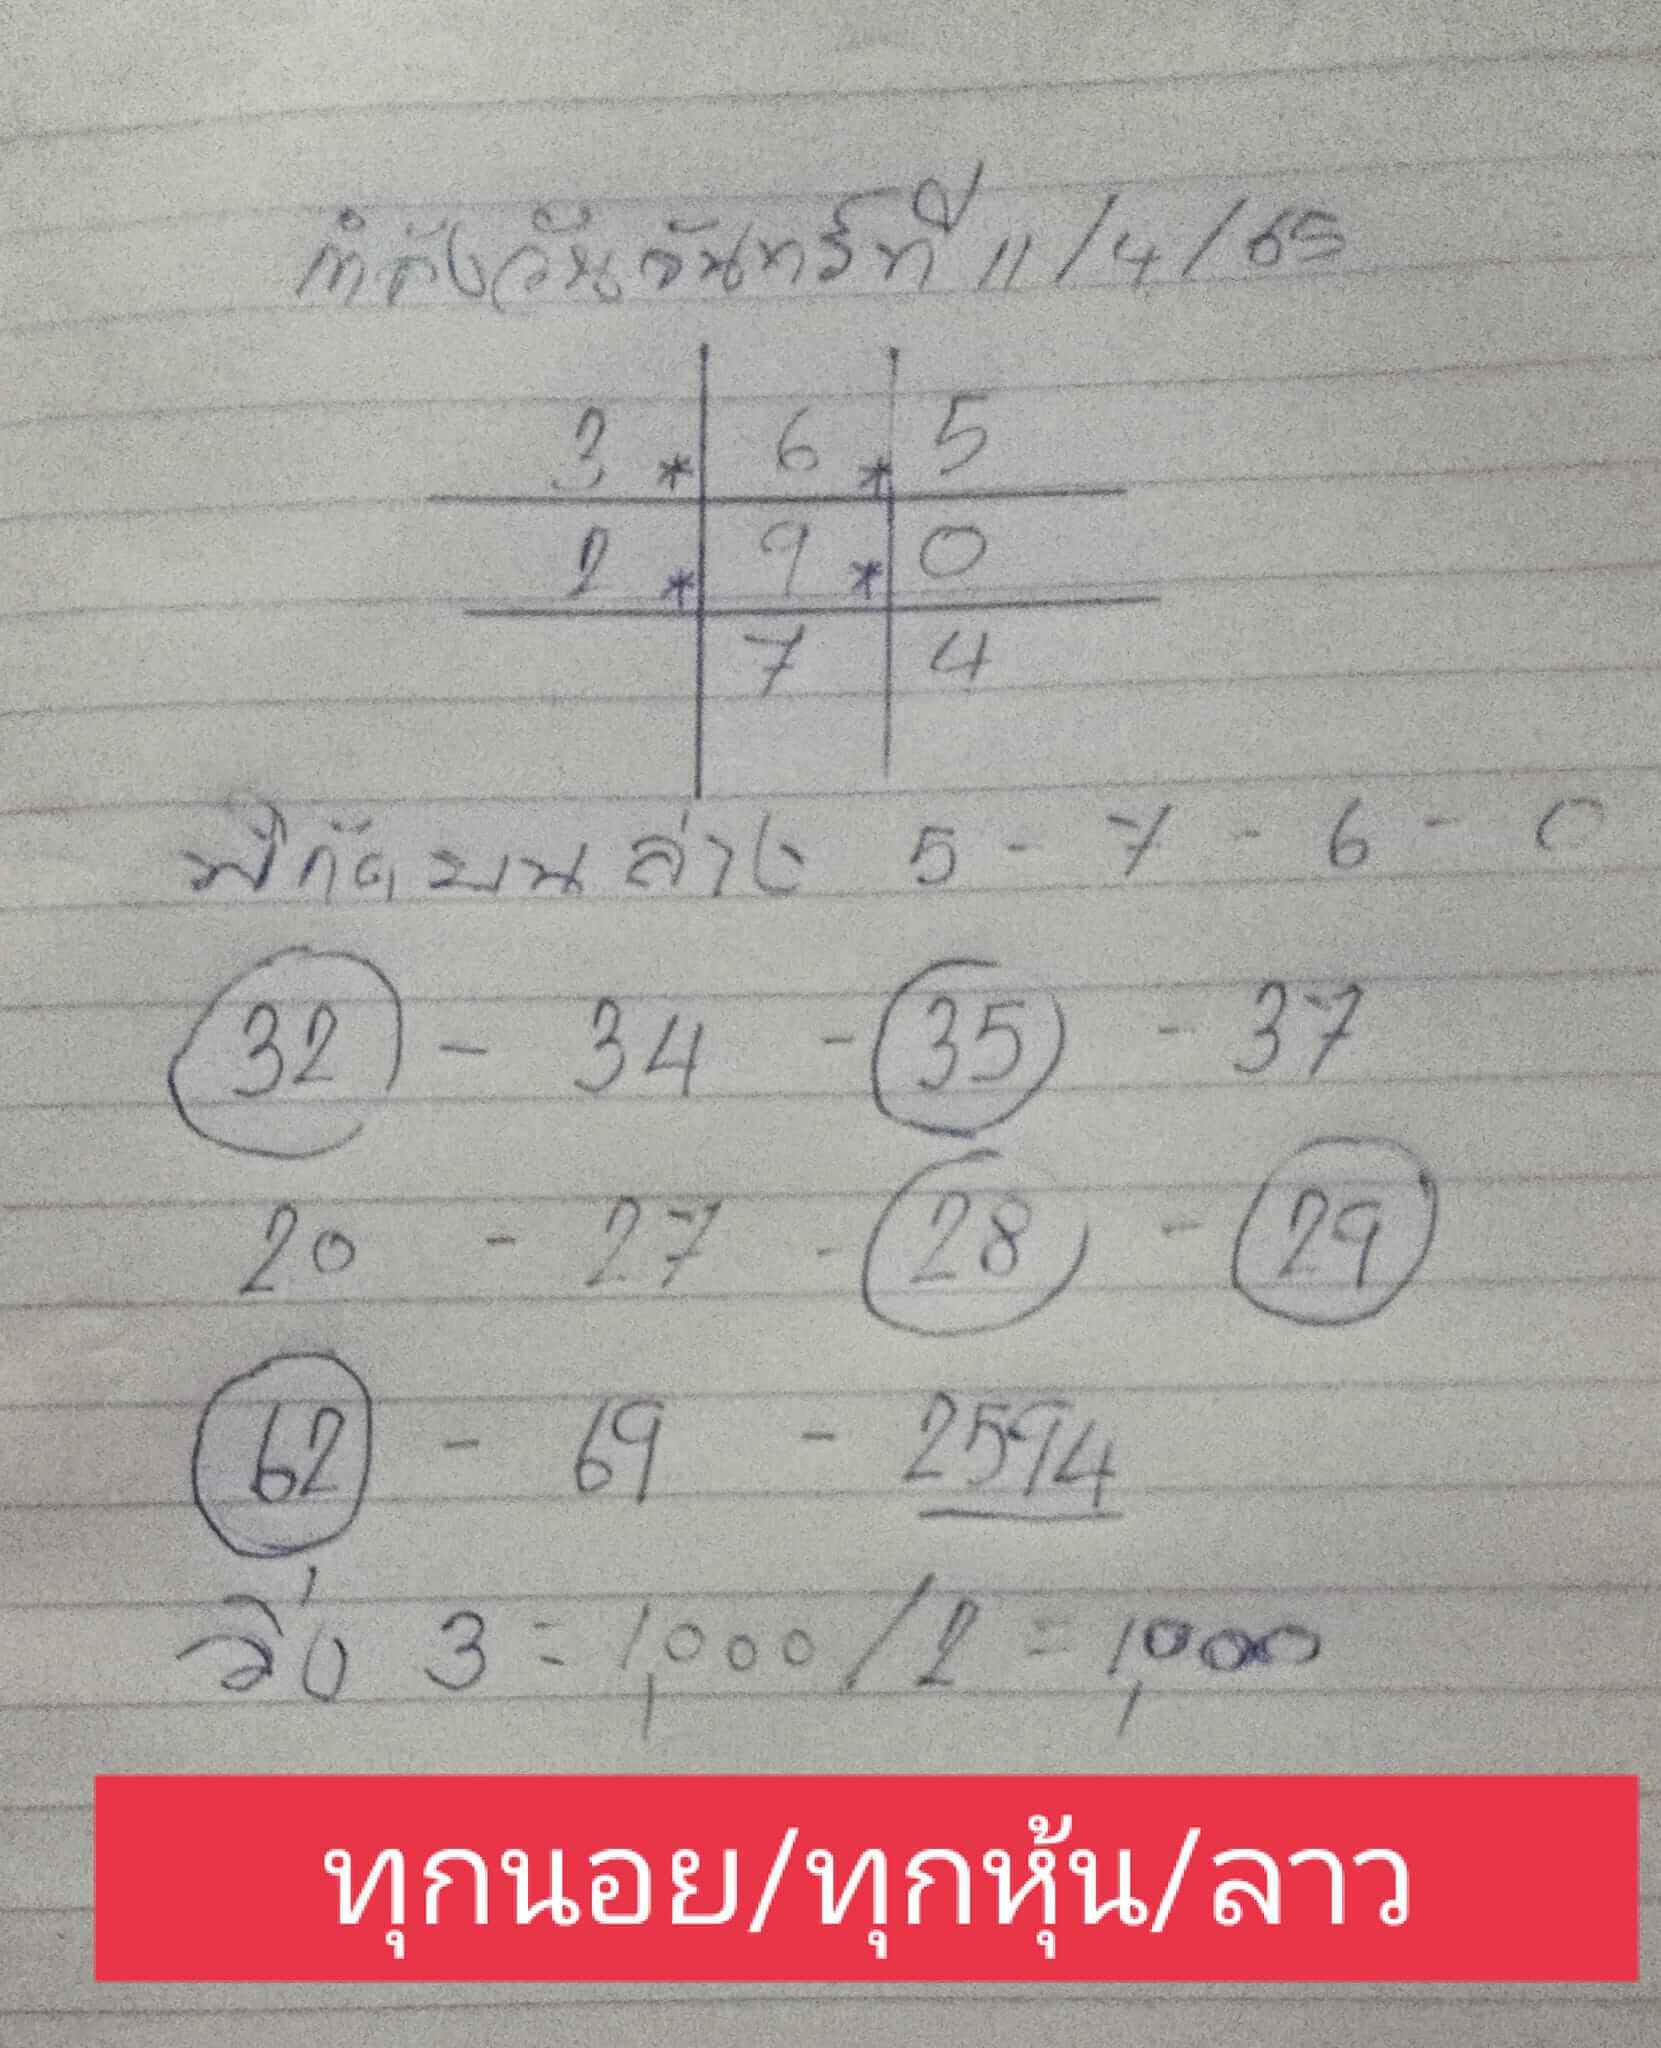 กำลังวันจันทร์ที่ 11/4/65
3 * 6 * 5
2 * 9 * 0
7 4
พิกัดบนล่าง 5 - 7 - 6 - 0
32 - 34 - 35 - 37
20 - 27 - 28 - 29
62 - 69 - 2594
วิ่ง 3 = 1,000 / 2 = 1,000
ทุกนอย/ทุกหุ้น/ลาว